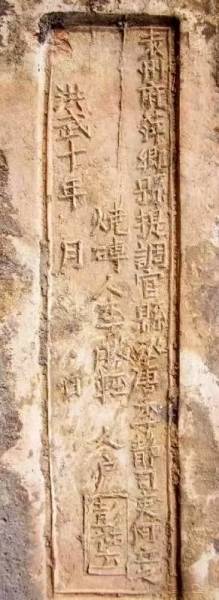 袁州府萍鄉縣提調官縣丞唐李靜司吏何文
燒磚人李 人户彭
洪武十年 月 日